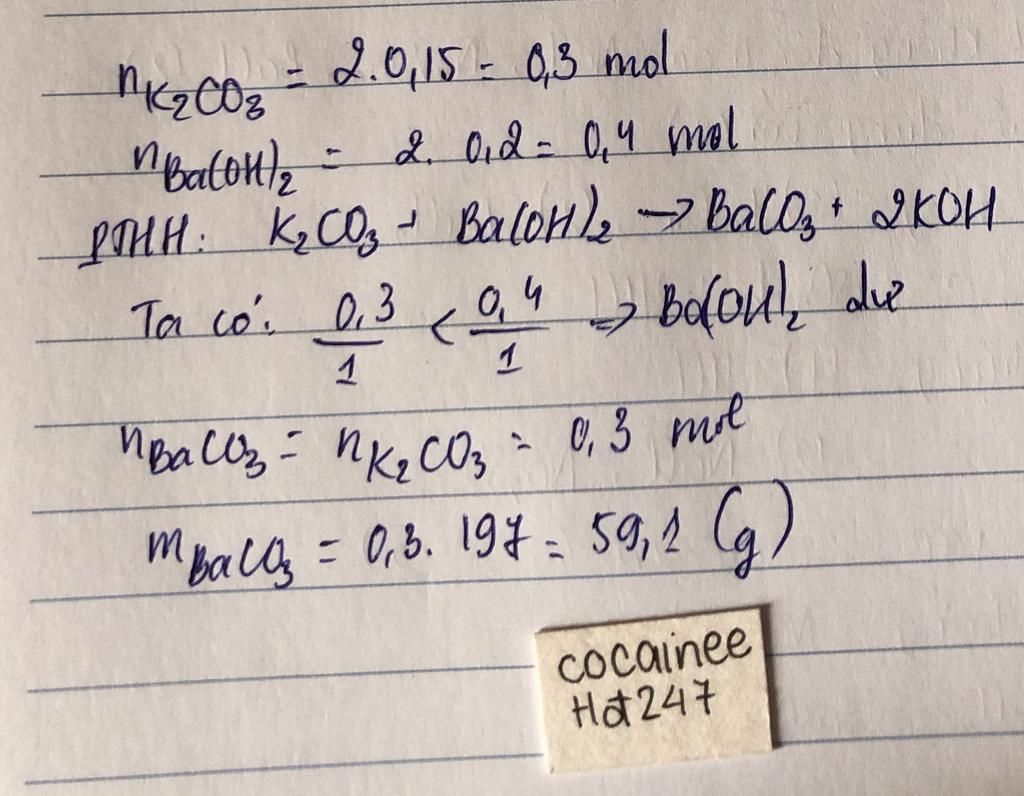 nK₂CO₃ = 2.0,15 = 0,3 mol
nBa(OH)₂ = 2. 0,2 = 0,4 mol
PTHH: K₂CO₃ + Ba(OH)₂ → BaCO₃ + 2KOH
Ta có: 0,3/1 < 0,4/1 => Ba(OH)₂ dư
nBaCO₃ = nK₂CO₃ = 0,3 mol
mBaCO₃ = 0,3. 197 = 59,1 (g)
cocainee
Hot247